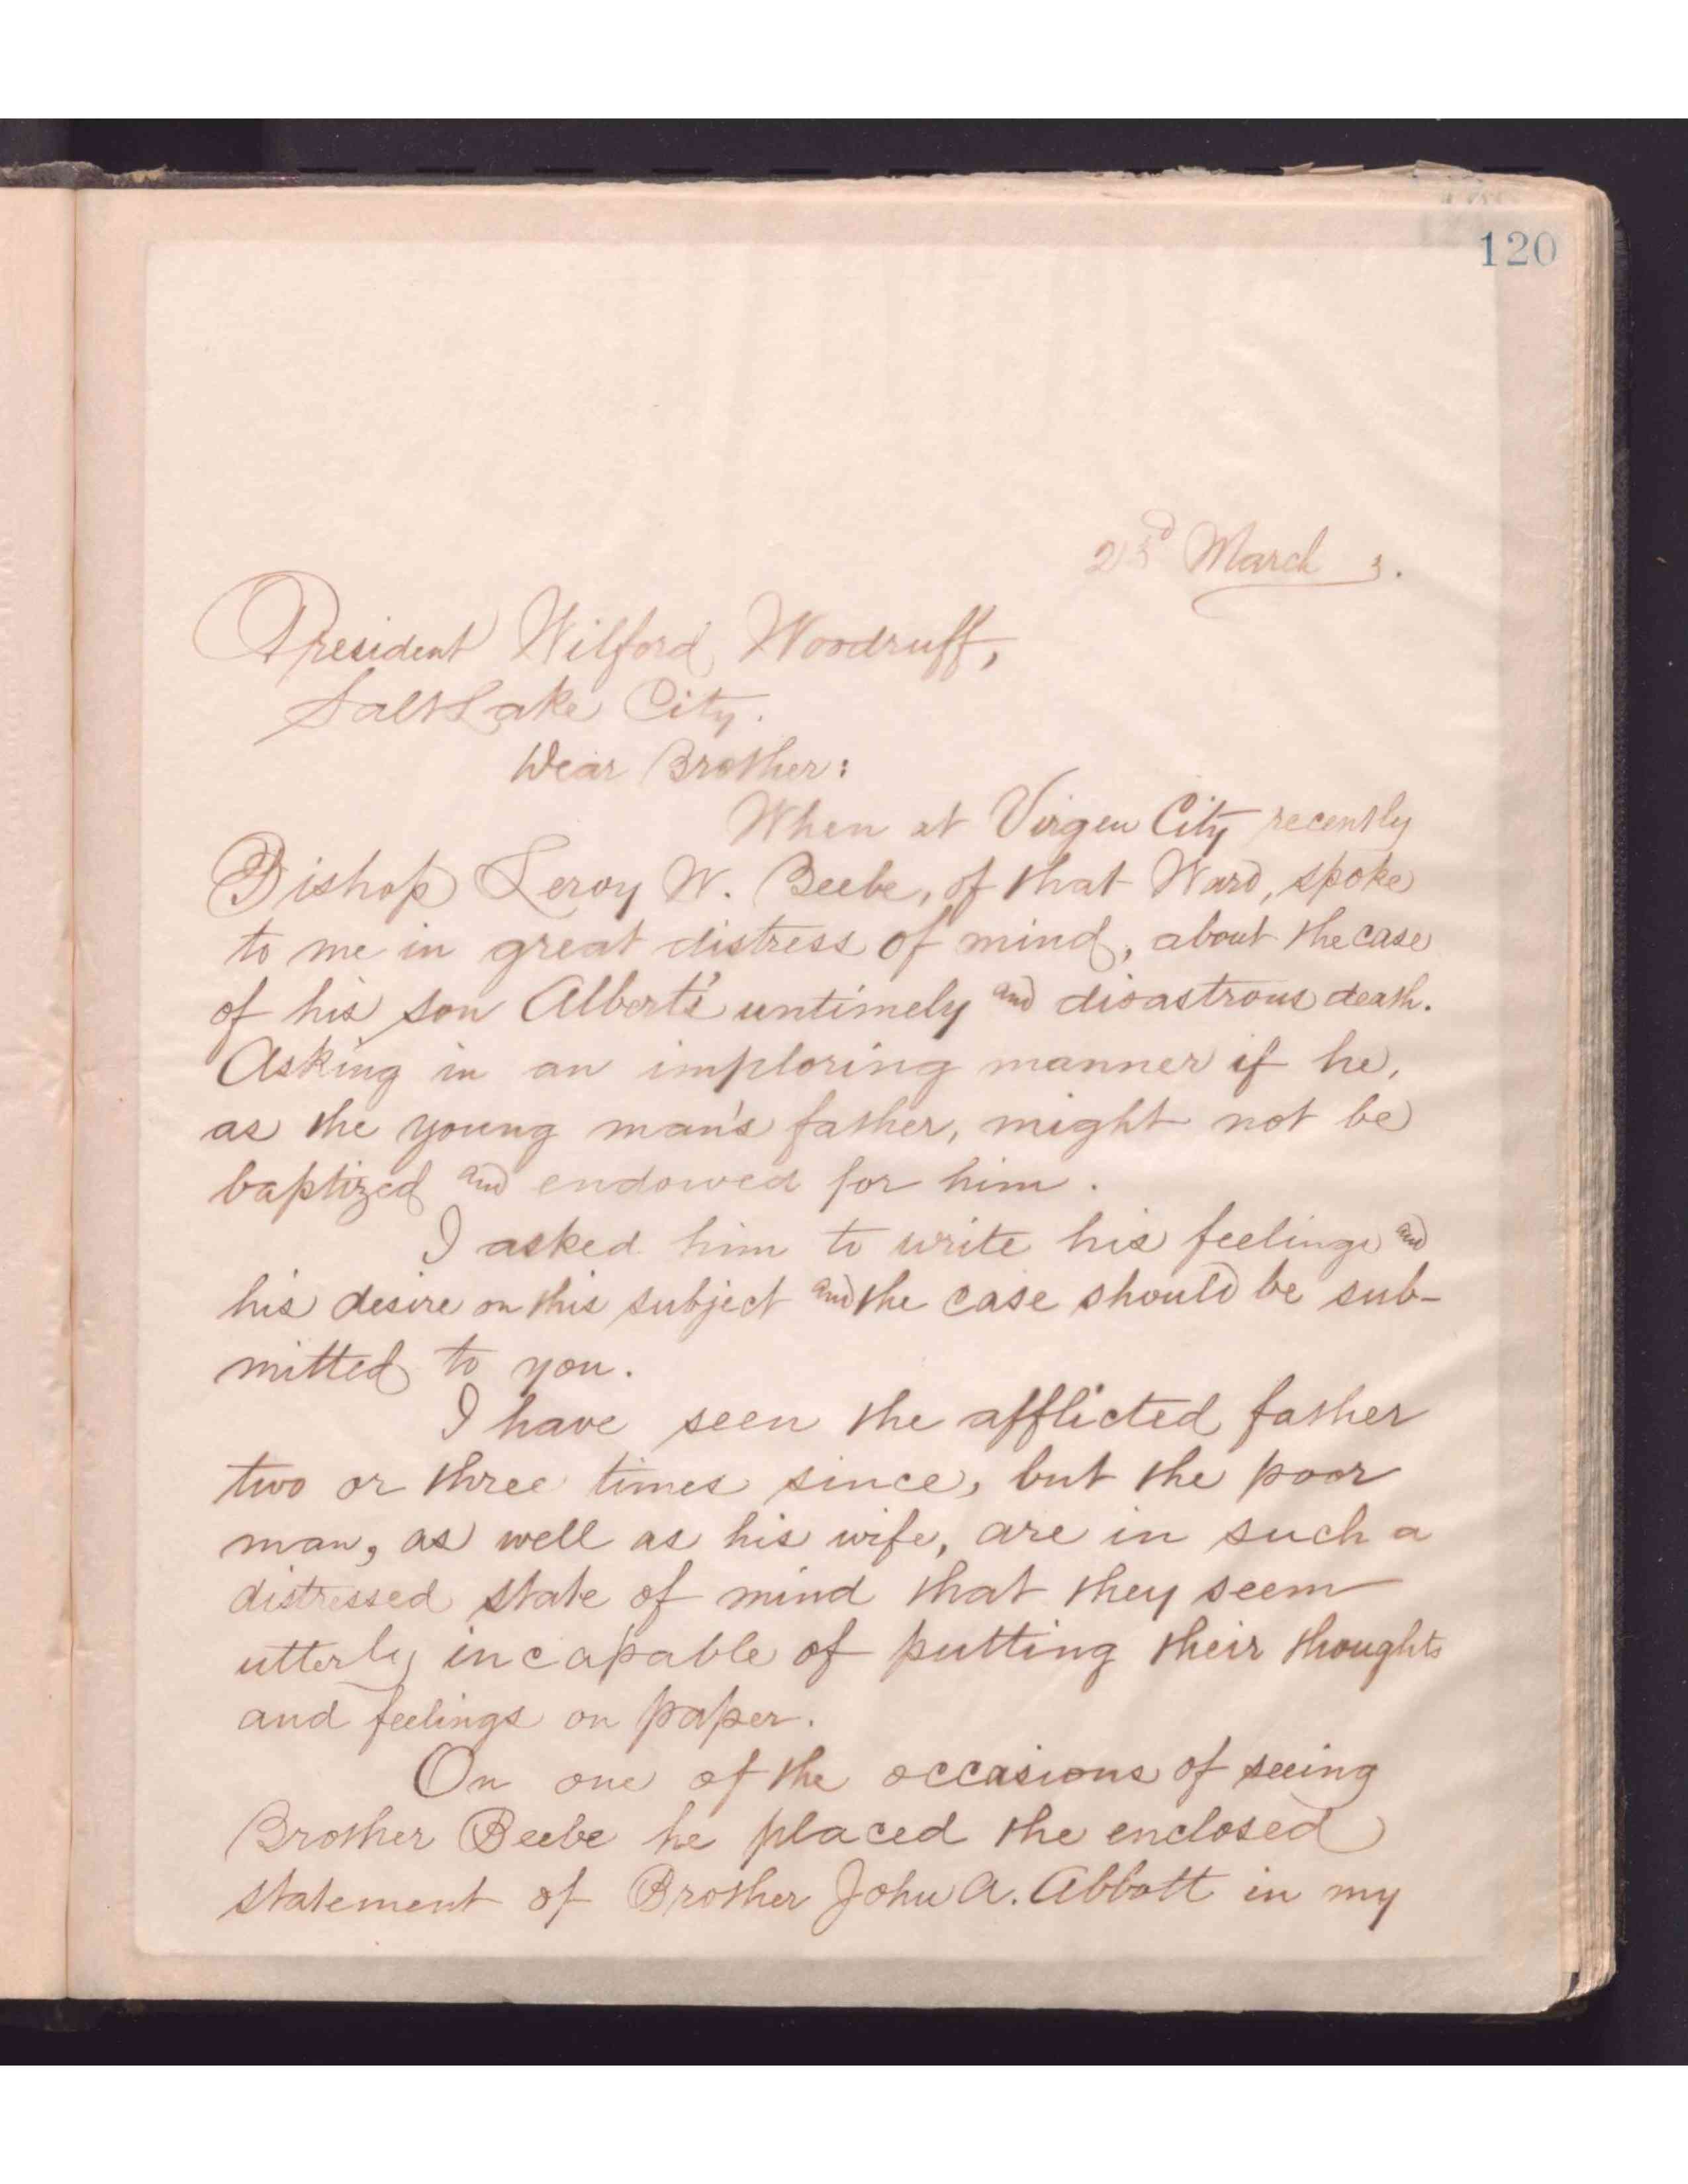 120
23rd March 3.
President Wilford Woodruff,
Salt Lake City.
Dear Brother:
When at Virgen City recently
Bishop Leroy W. Beebe, of that Ward, spoke
to me in great distress of mind, about the case
of his son Albert's untimely and disastrous death.
Asking in an imploring manner if he,
as the young man's father, might not be
baptized and endowed for him.
I asked him to write his feelings and
his desire on this subject and the case should be sub-
mitted to you.
I have seen the afflicted father
two or three times since, but the poor
man, as well as his wife, are in such a
distressed state of mind that they seem
utterly incapable of putting their thoughts
and feelings on paper.
On one of the occasions of seeing
Brother Beebe he placed the enclosed
statement of Brother John A. Abbott in my